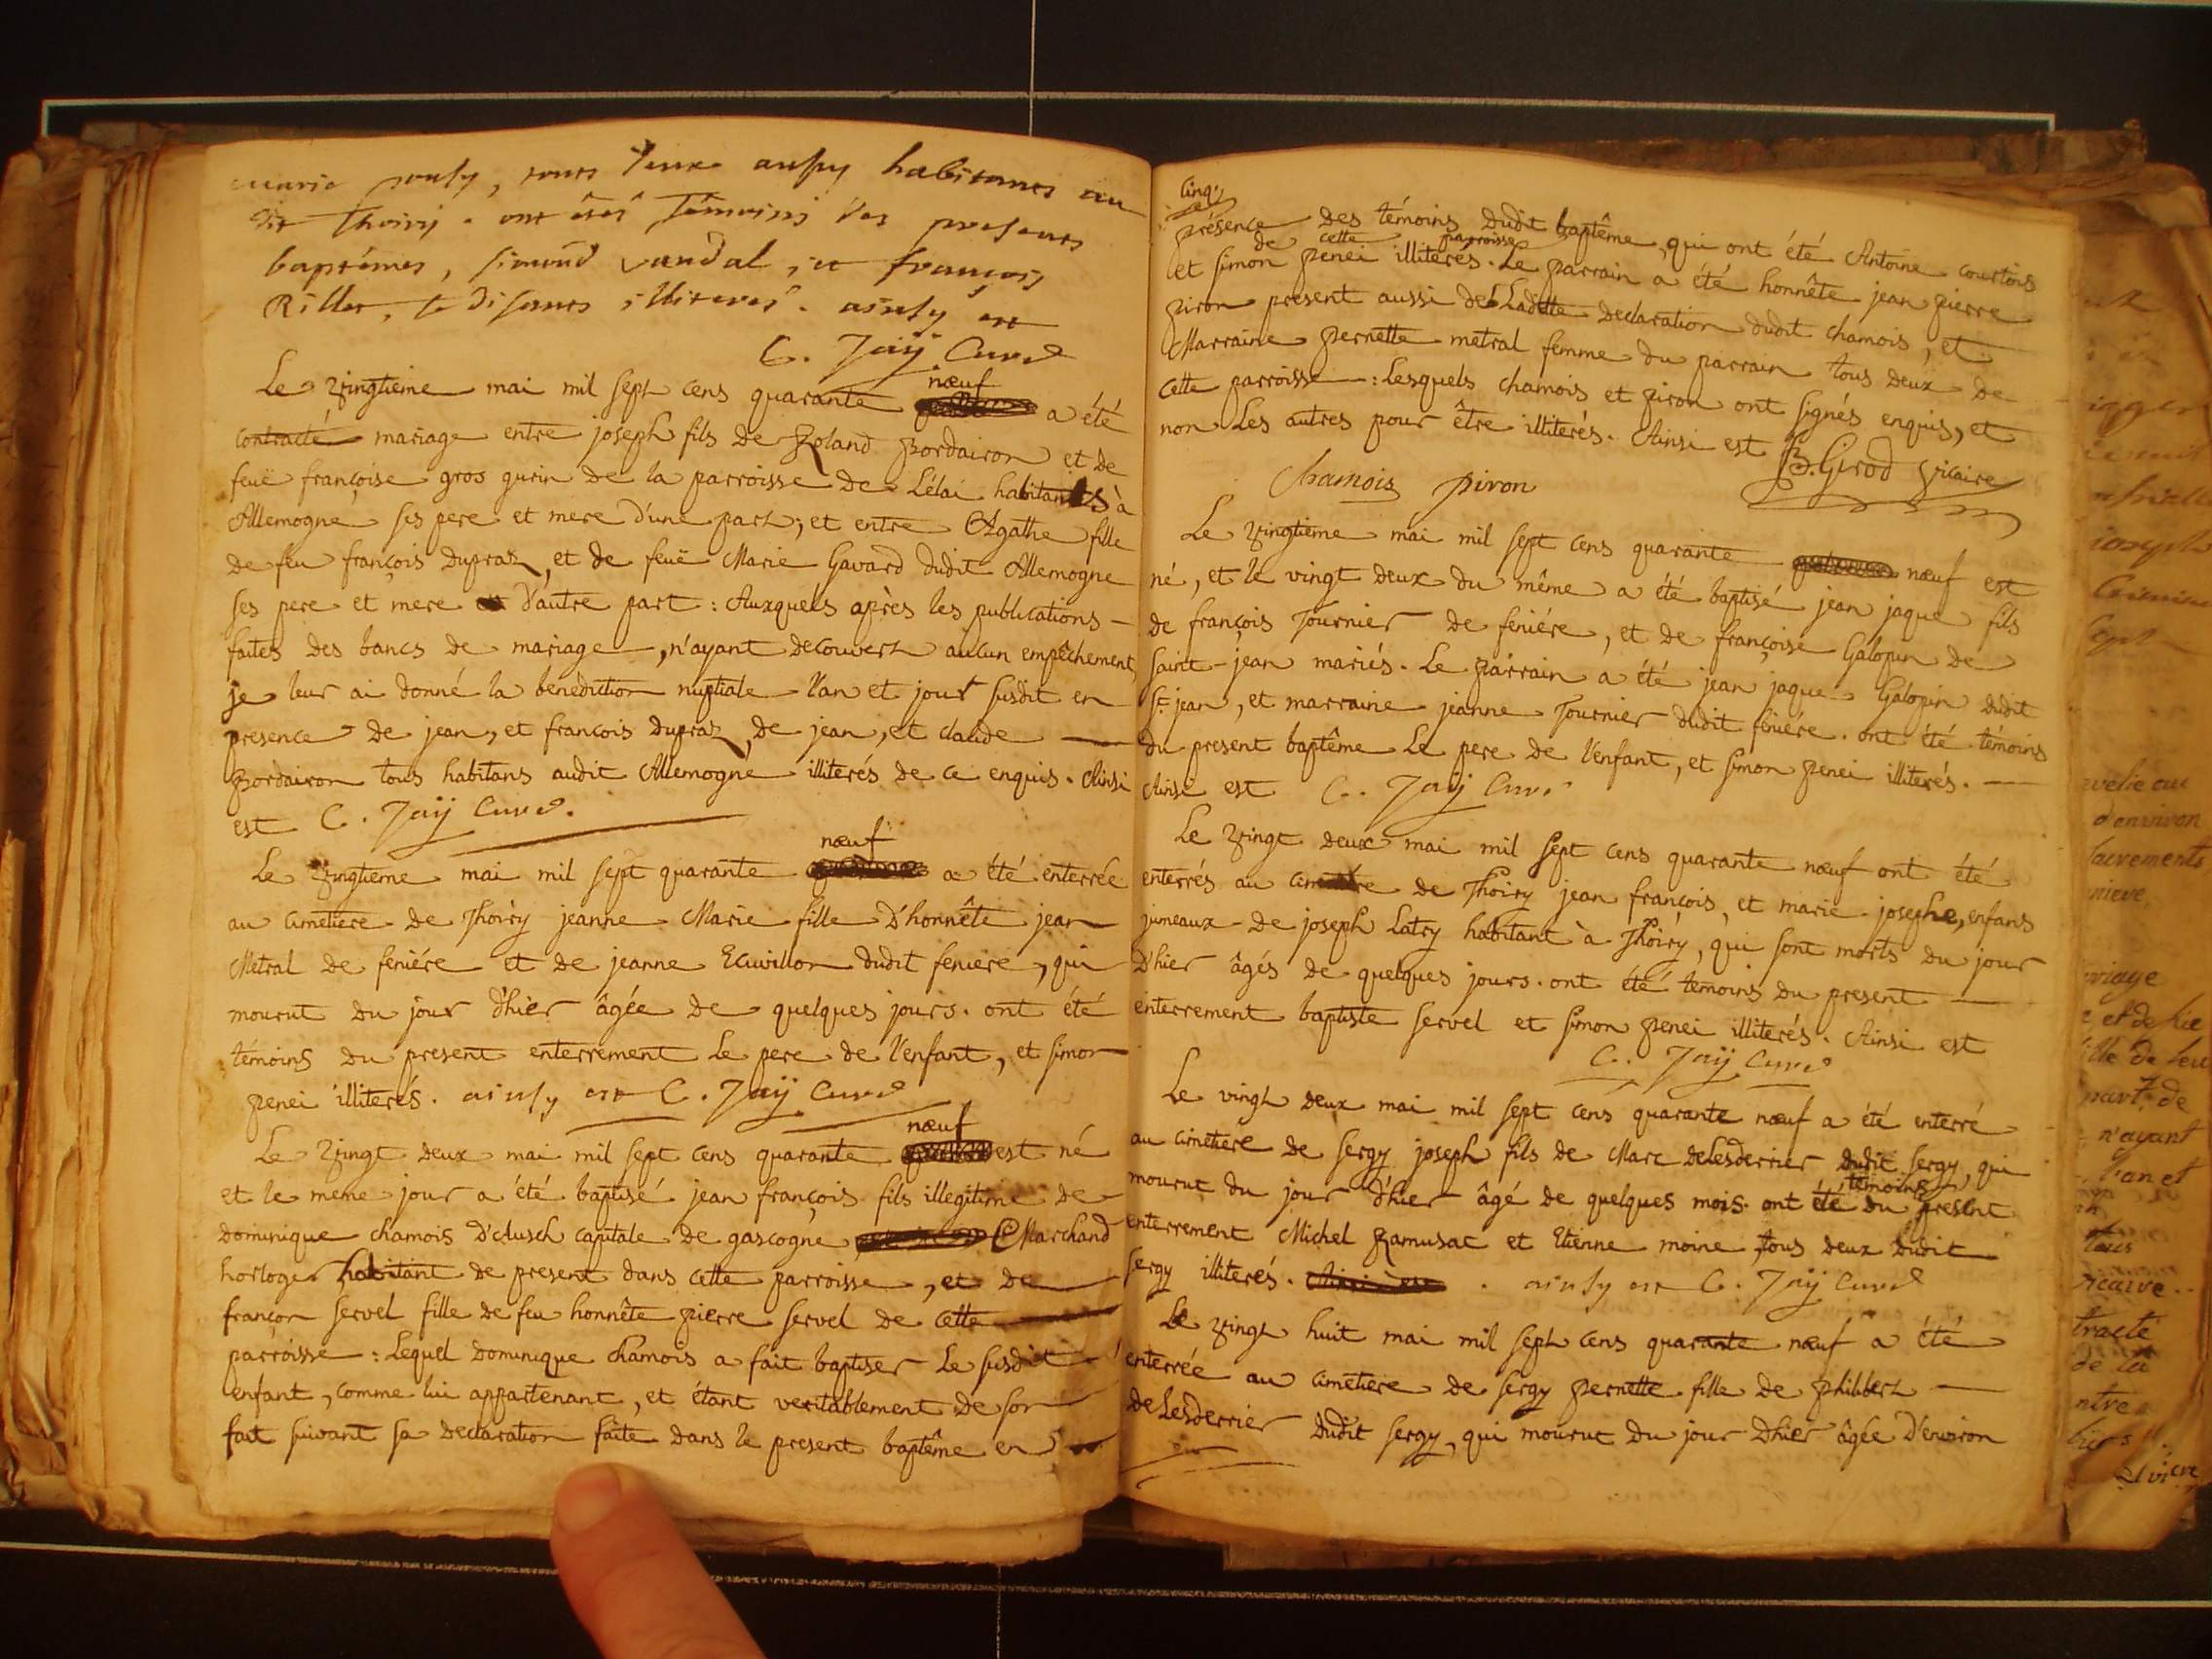 marie pouly, tous deux aussy habitants au
dit Thoiry. ont étés Témoins des presents
baptémes, simond vandal, et françois
Rillet, se disants illiterés. ainsy est
C. Jaÿ Curé
Le vingtième mai mil sept cens quarante nœuf a été
contracté mariage entre joseph fils de Roland Bordairon et de
feuë françoise gros gurin de la parroisse de Lélai habitants à
Allemogne ses pere et mere d'une part; et entre Agathe fille
de feu françois Dupraz, et de feuë Marie Gavard dudit Allemogne
ses pere et mere d'autre part: Auxquels après les publications
faites des bancs de mariage, n'ayant decouvert aucun empêchement
je leur ai donné la benediction nuptiale l'an et jour susdit en
presence de jean, et francois dupraz, de jean, et claude
Bordairon tous habitans audit Allemogne illiterés de ce enquis. Ainsi
est C. Jaÿ Curé.
Le vingtième mai mil sept quarante nœuf a été enterrée
au cimetiere de Thoiry jeanne Marie fille d'honnête jean
Metral de feniére et de jeanne Ecuvillon dudit feniere, qui
mourut du jour d'hier âgée de quelques jours. ont été
témoins du present enterrement Le pere de l'enfant, et simon
penei illiterés. ainsy est C. Jaÿ Curé
Le vingt deux mai mil sept cens quarante nœuf est né
et le meme jour a été baptisé jean françois fils illegitime de
Dominique chamois d'Ausch capitale de gascogne Marchand
horloger habitant de present dans cette parroisse, et de
françon servel fille de feu honnête pierre servel de cette
parroisse: Lequel Dominique chamois a fait baptiser Le susdit
enfant, comme lui appartenant, et étant veritablement de son
fait suivant sa declaration faite dans le present baptême en
cinq.
présence des témoins dudit baptême, qui ont été Antoine courtois
et simon penei de cette parroisse illiterés. Le parrain a été honnête jean pierre
piron present aussi de Ladite declaration dudit chamois, et
Marraine pernette metral femme du parrain tous deux de
cette parroisse: Lesquels chamois et piron ont signés enquis, et
non Les autres pour être illiterés. Ainsi est B. Girod vicaire
Chamois piron
Le vingtième mai mil sept cens quarante nœuf est
né, et le vingt deux du même a été baptisé jean jaque fils
de françois Tournier de feniére, et de françoise Galopin de
saint-jean mariés. Le parrain a été jean jaque Galopin dudit
St. jean, et marraine jeanne Tournier dudit feniére. ont été témoins
du present baptême Le pere de l'enfant, et simon penei illiterés.
Ainsi est C. Jaÿ Curé
Le vingt deux mai mil sept cens quarante nœuf ont été
enterrés au cimetiere de Thoiry jean françois, et marie josephe, enfans
jumeaux de joseph Latry habitant à Thoiry, qui sont morts du jour
d'hier âgés de quelques jours. ont été temoins du present
enterrement baptiste servel et simon penei illiterés. Ainsi est
C. Jaÿ Curé
Le vingt deux mai mil sept cens quarante nœuf a été enterré
au cimetiere de sergy joseph fils de Marc deLesderrier dudit sergy, qui
mourut du jour d'hier âgé de quelques mois. ont été témoins du present
enterrement Michel Ramusat et Etienne moine, tous deux dudit
sergy illiterés. ainsy est C. Jaÿ Curé
Le vingt huit mai mil sept cens quarante nœuf a été
enterrée au cimetiere de sergy pernette fille de philibert
deLesderrier dudit sergy, qui mourut du jour d'hier âgée d'environ